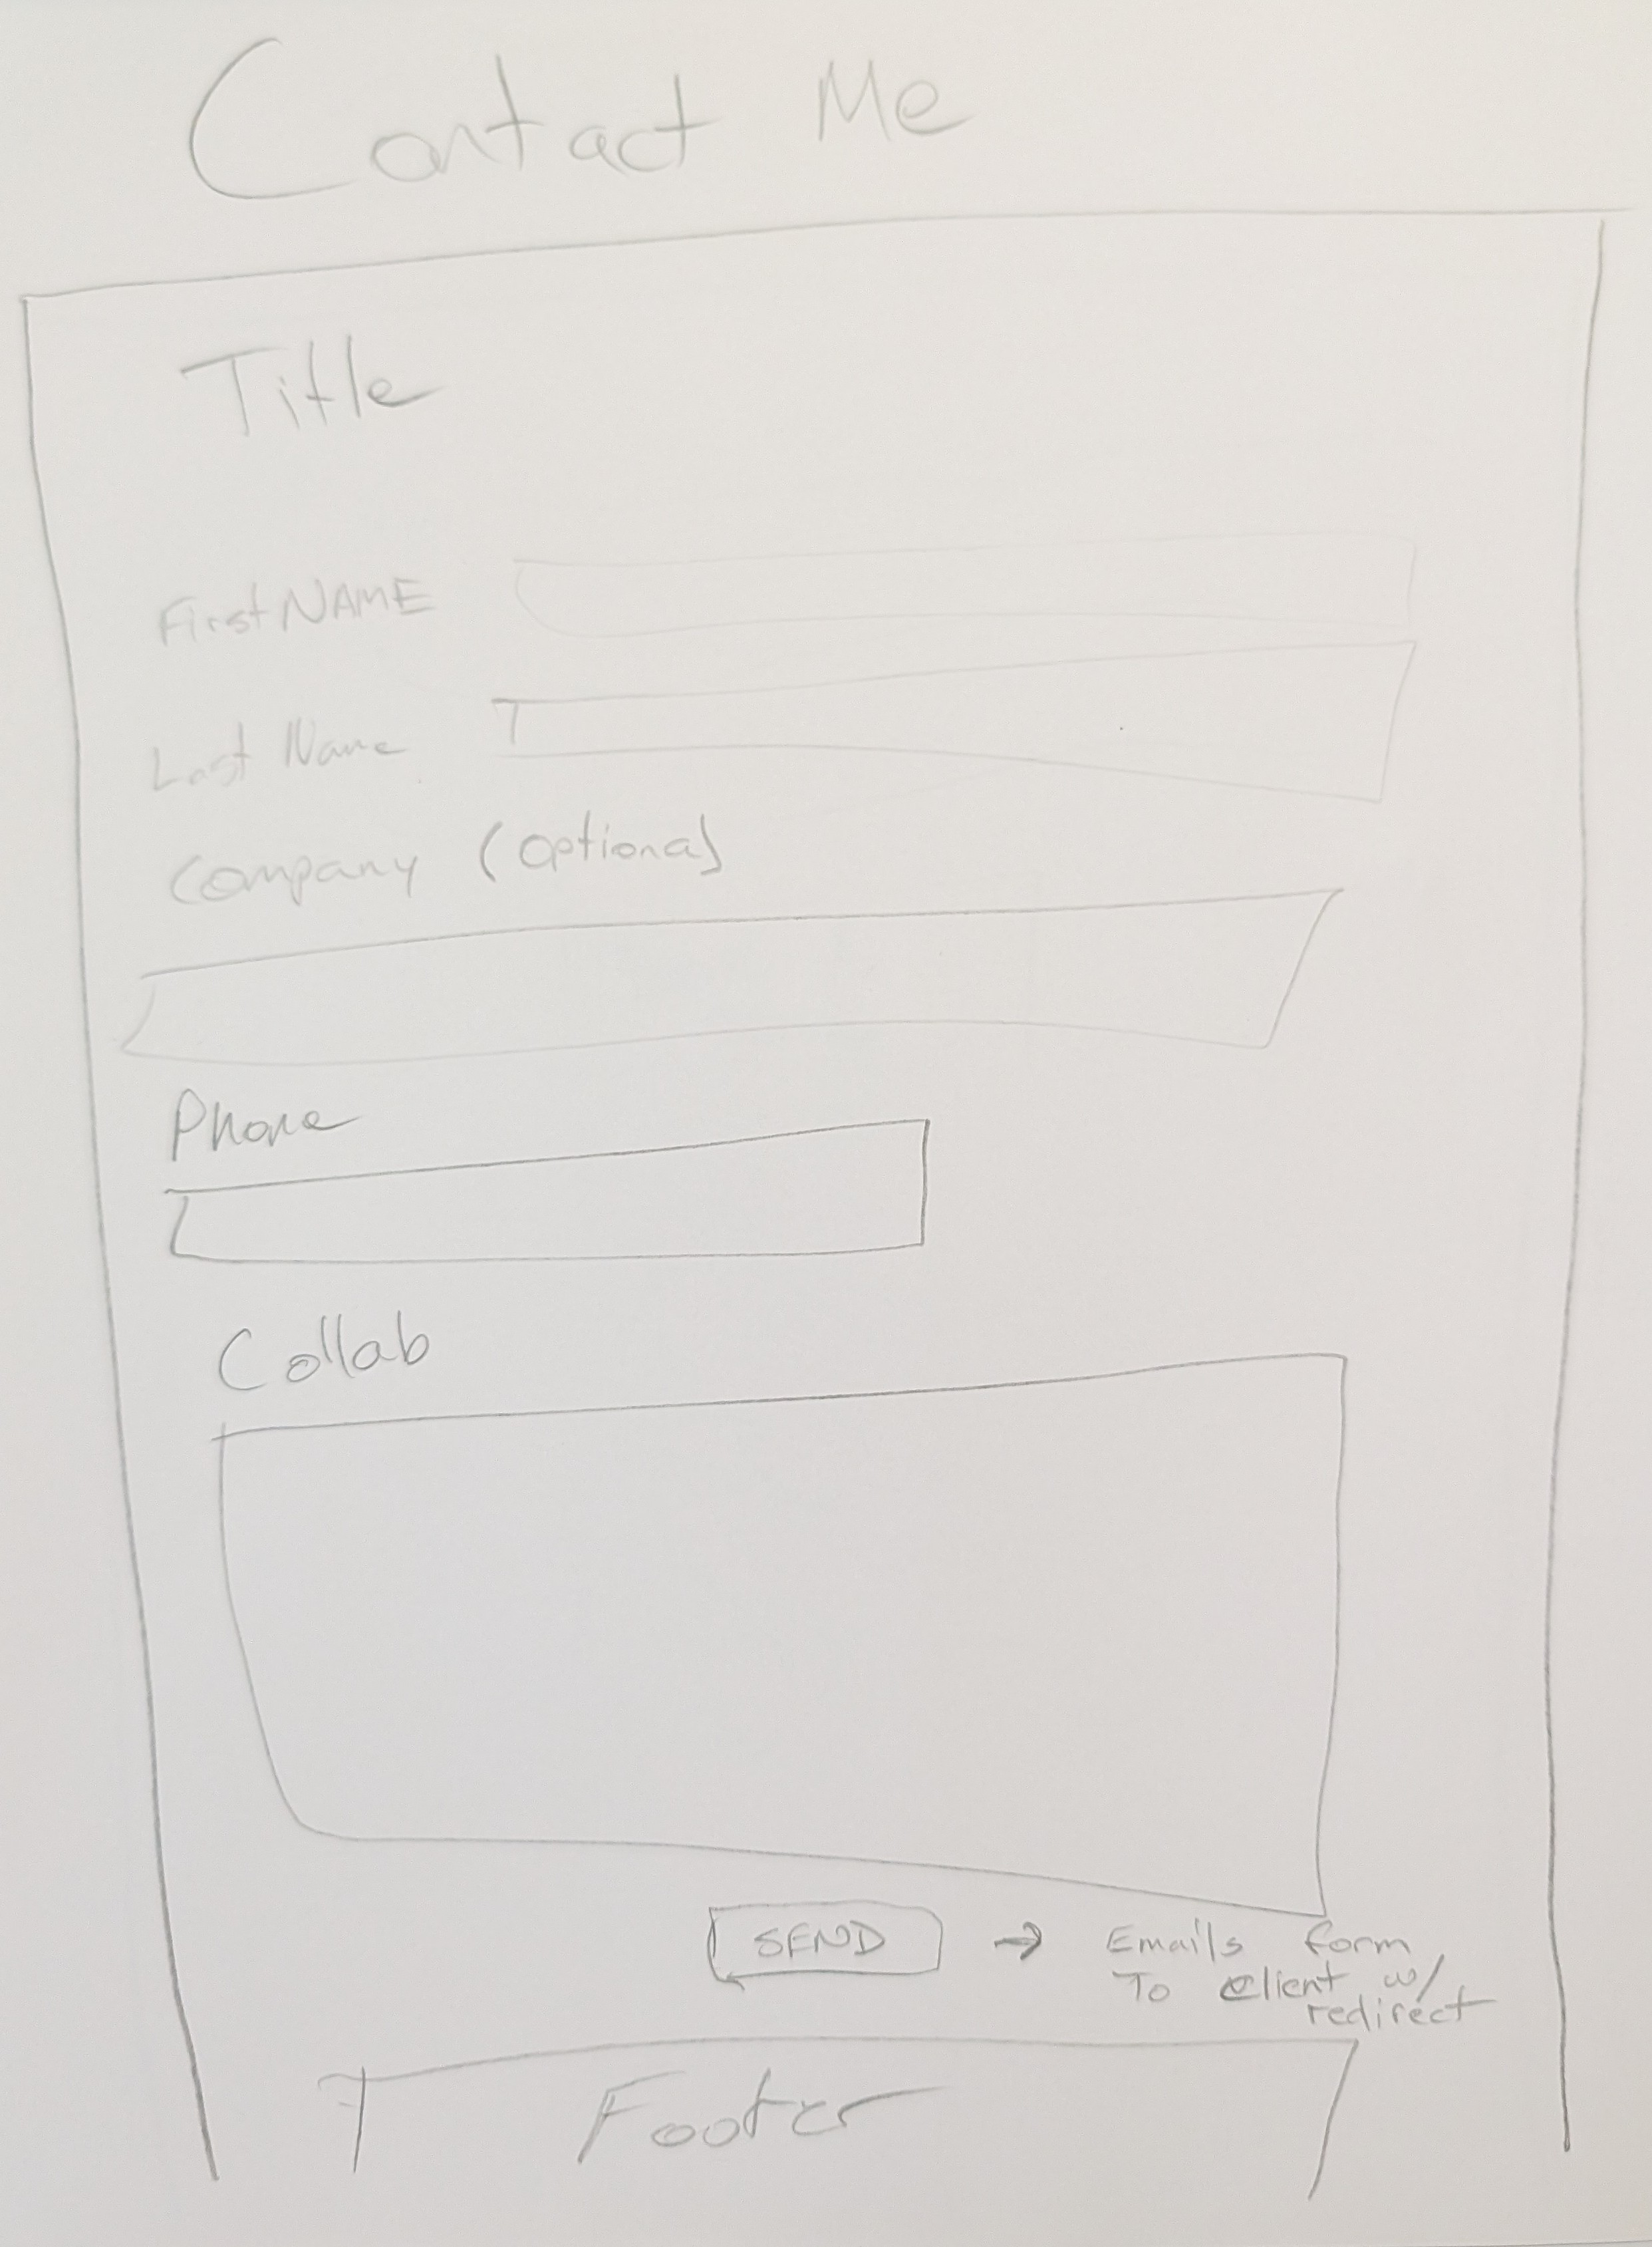 Contact Me
Title
First NAME
Last Name
Company (Optional)
Phone
Collab
SEND → Emails form
To Client w/
redirect
Footer